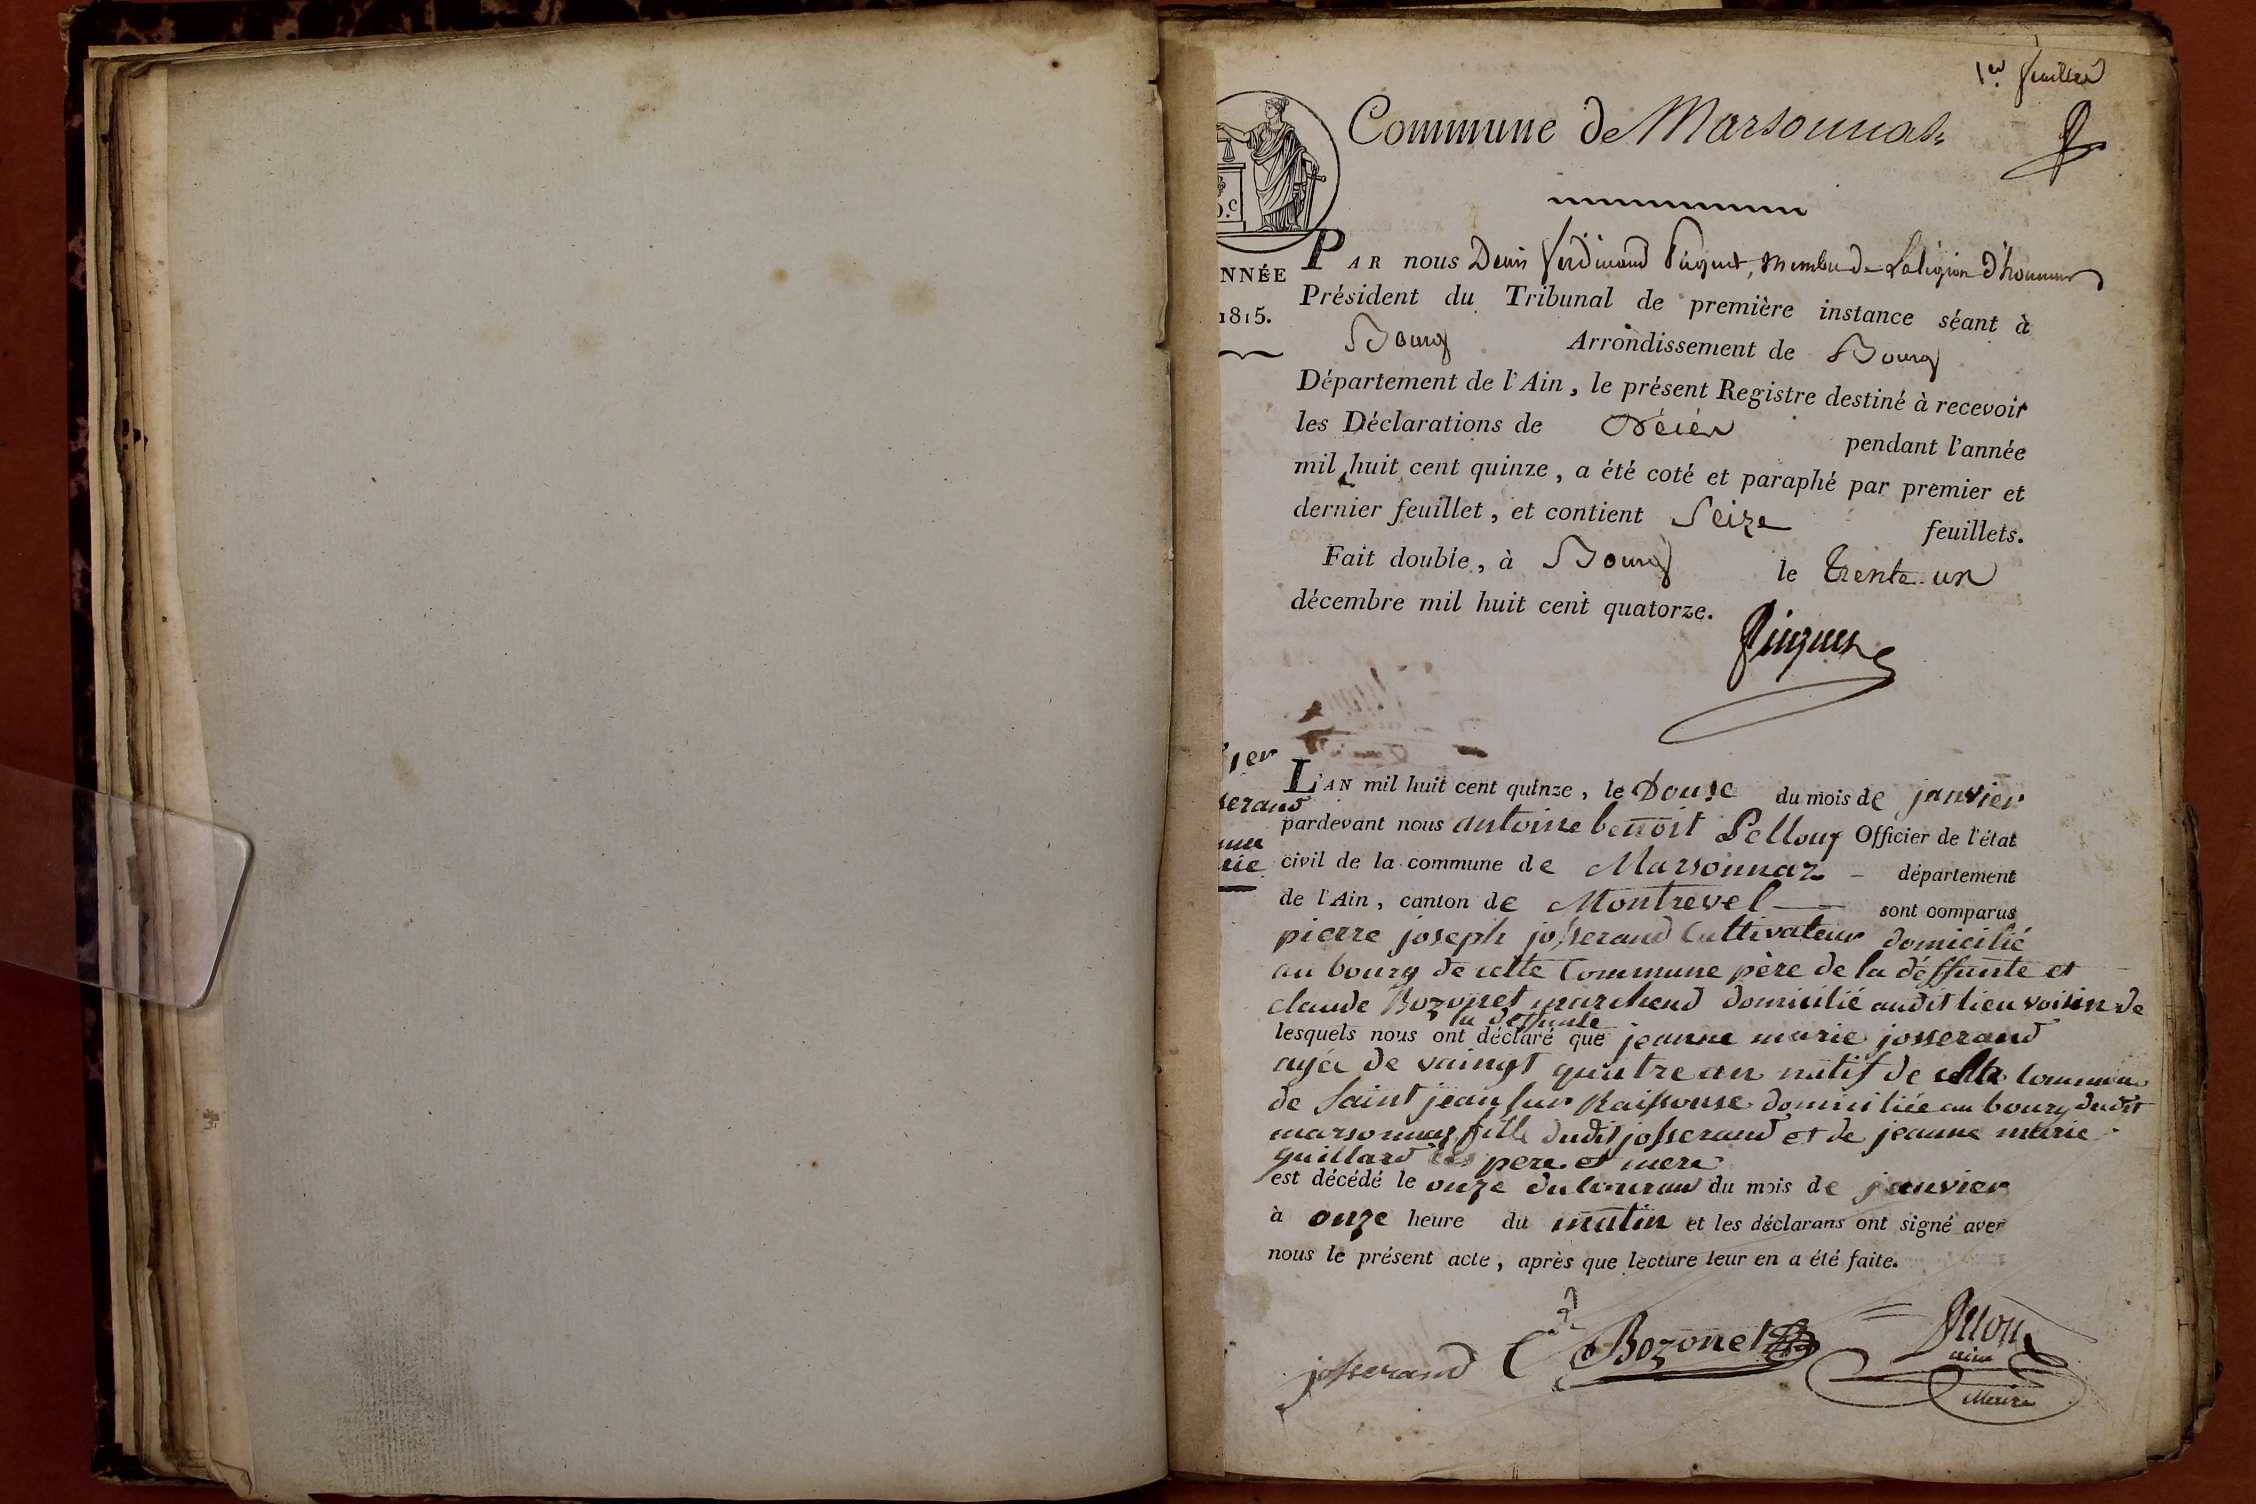 1er feuillet
Commune de Marsonnas
D.C
NNÉE
1815.
PAR nous Denis ferdinand Piquet, Membre de La légion d'honneur
Président du Tribunal de première instance séant à
Bourg Arrondissement de Bourg
Département de l'Ain, le présent Registre destiné à recevoir
les Déclarations de Décès pendant l'année
mil huit cent quinze, a été coté et paraphé par premier et
dernier feuillet, et contient Seize feuillets.
Fait double, à Bourg le trente-un
décembre mil huit cent quatorze.
ier
serand
nne
rie
L'AN mil huit cent quinze, le Douse du mois de janvier
pardevant nous antoine benoit Pelloux Officier de l'état
civil de la commune de Marsonnaz département
de l'Ain, canton de Montrevel sont comparus
pierre joseph josserand Cultivateur domicilié
au bourg de cette Commune père de la déffunte et
claude Bozonet marchend domicilié audit lieu voisin de
la deffunte
lesquels nous ont déclaré que jeanne marie josserand
agée de vaingt quatre an natif de cette Commune
de Saint jean sur Raissouse domiciliée au bourg dudit
marsonnas fille dudit josserand et de jeanne marie
guillard ses pere et mere
est décédé le onze du Courant du mois de janvier
à onze heure du matin et les déclarans ont signé avec
nous le présent acte, après que lecture leur en a été faite.
josserand Cde Bozonet
ainé
Maire